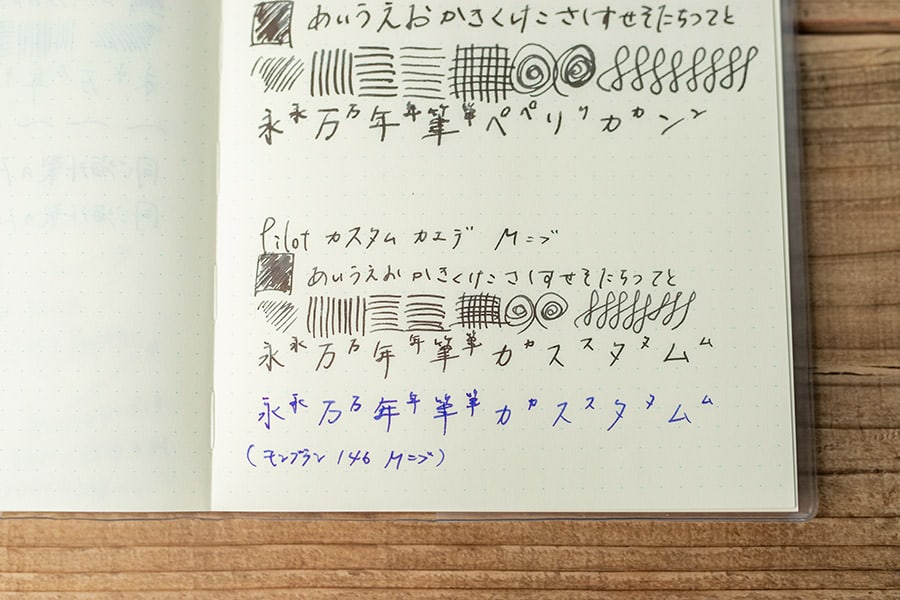 あいうえおかきくけこさしすせそたちつてと
永永万万年年筆筆ペペリリカカンン
Pilot カスタム カエデ Mニブ
あいうえおかきくけこさしすせそたちつてと
永永万万年年筆筆カカススタタムム
永永万万年年筆筆カカススタタムム
(モンブラン 146 Mニブ)